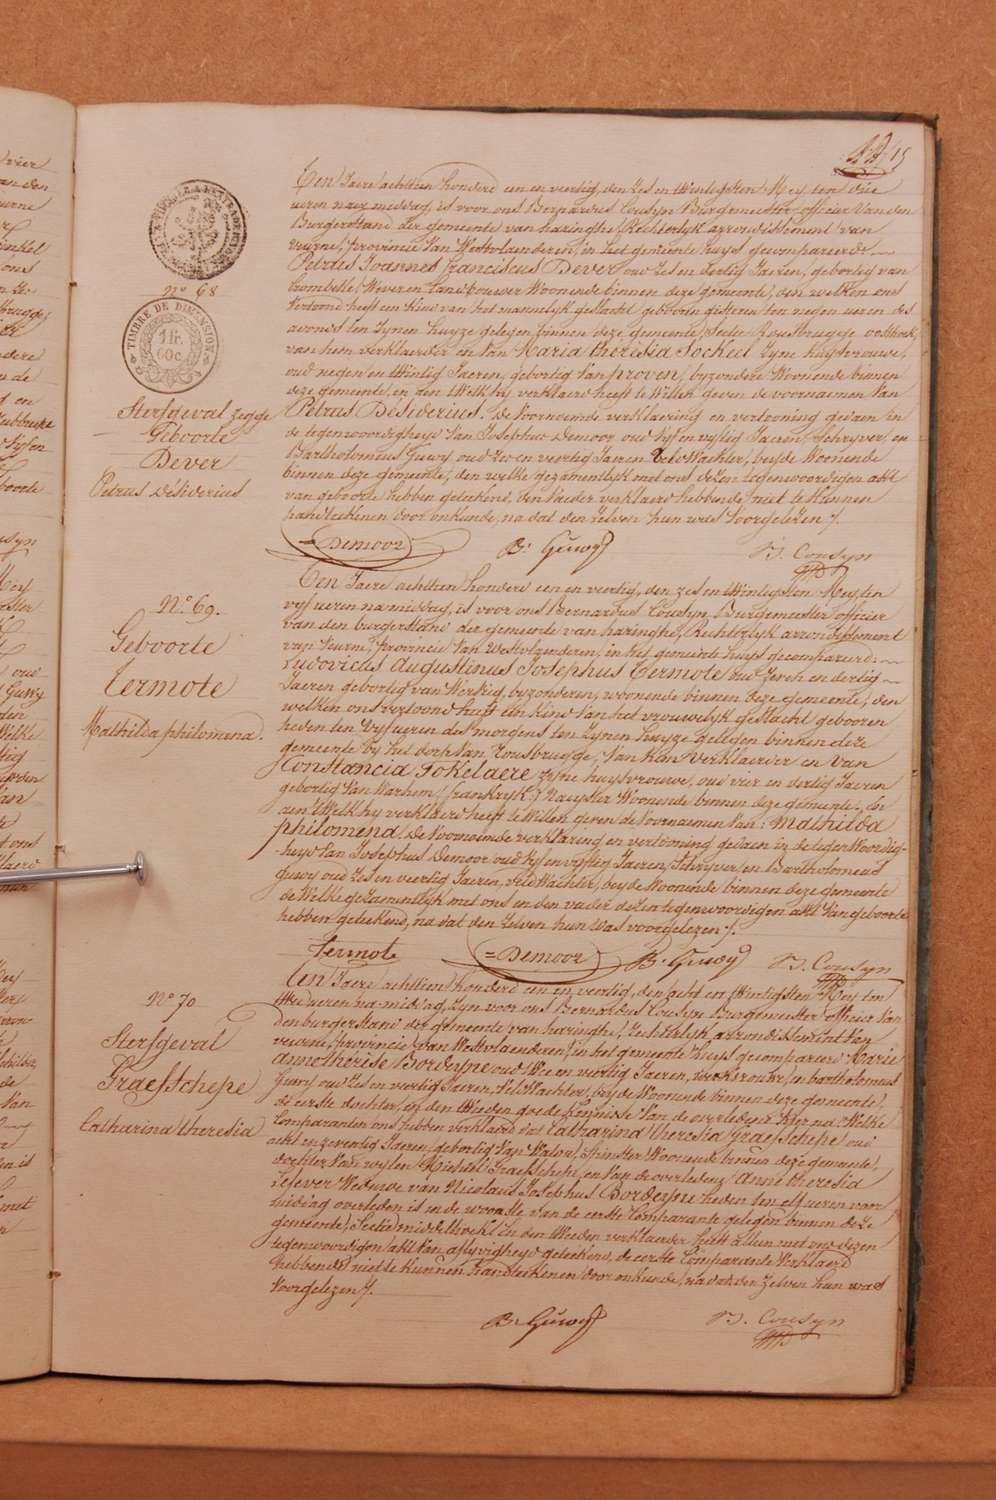 15
N.º 68
TIMBRE DE DIMENSION
1 fr.
60 c.
Sterfgeval zegge
Geboorte
Dever
Petrus Désiderius
Ten Jaere achttien honderd een en veertig, den zes en twintigsten Mey ten drie
ueren naer middag, is voor ons Bernardus Cousyn Burgemeester officier van den
Burgerstand der gemeente van haringhe, Rechterlyk arrondissement van
veurne, provincie van Westvlaenderen, in het gemeente huys gecompareerd
Petrus Joannes franciscus Dever oud zes en dertig Jaeren, geboortig van
Crombeke, Wever en Landbouwer Woonende binnen deze gemeente, den welken ons
vertoond heeft een kind van het mannelyk geslacht gebooren gisteren ten negen ueren des
avonds ten zynen huyze gelegen binnen deze gemeente, sectie Rousbrugge oosthoek,
van hem verklaerder en van Maria theresia Sockeel zyne huysvrouwe,
oud negen en twintig Jaeren, geboortig van proven, byzondere Woonende binnen
deze gemeente, en aen Welk hy verklaerd heeft te Willen geven de voornaemen van
Petrus Désiderius. De Voornoemde verklaering en vertooning gedaen in
de tegenwoordigheyd van Josephus Demoor oud vyf en vyftig Jaeren, Schryver, en
Bartholomeus Guwy oud zes en veertig Jaeren veldWachter, beyde Woonende
binnen deze gemeente, den welke gezamentlyk met ons dezen tegenwoordigen akt
van geboorte hebben geteekend, den vader verklaerd hebbende niet te kunnen
handteekenen door onkunde, na dat den zelven hun was voorgelezen ./.
=Demoor B. Guwy B. Cousyn
N.º 69.
Geboorte
Termote
Mathilda philomena.
Ten Jaere achttien honderd een en veertig, den zes en twintigsten Mey ten
vyf ueren na middag, is voor ons Bernardus Cousyn, Burgemeester officier
van den burgerstand der gemeente van haringhe, Rechterlyk arrondissement
van Veurne, Provincie van Westvlaenderen, in het gemeente huys gecompareerd:
Ludovicus Augustinus Josephus Termote oud zeven en dertig
Jaeren geboortig van Werkig, byzonderen, woonende binnen deze gemeente, den
welken ons vertoond heeft een kind van het vrouwelyk geslacht gebooren
heden ten vyf ueren des morgens ten zynen huyze gelegen binnen deze
gemeente by het dorp van Rousbrugge, van hem verklaerder en van
Constancia Tokelaere zyne huysvrouwe, oud vier en dertig Jaeren
geboortig van Warhem (frankryk) Naeyster Woonende binnen deze gemeente, en
aen Welk hy verklaerd heeft te Willen geven de Voornaemen van: Mathilda
philomena. De Voornoemde verklaring en vertooning gedaen in de tegenWoordig-
-heyd van Josephus Demoor oud vyf en vyftig Jaeren, Schryver, en Bartholomeus
Guwy oud zes en veertig Jaeren, veldWachter, beyde Woonende binnen deze gemeente
de Welke gezamentlyk met ons en den vader dezen tegenwoordigen akt van geboorte
hebben geteekend, na dat den zelven hun was voorgelezen ./.
Termote =Demoor B. Guwy B. Cousyn
Nº 70
Sterfgeval
Graefschepe
Catharina theresia
Ten Jaere achttien honderd een en veertig, den acht en twintigsten Mey ten
twee ueren na middag, zyn voor ons Bernardus Cousyn Burgemeester officier van
den burgerstand der gemeente van haringhe, Rechterlyk arrondissement van
veurne, provincie van Westvlaenderen, in het gemeente huys gecompareerd Marie
Annethérèse Bordeyne oud twee en veertig Jaeren, werkvrouw, en bartholomeus
Guwy oud zes en veertig Jaeren, veldWachter, beyde Woonende binnen deze gemeente,
de eerste dochter, en den tweeden goede kennisse van de overledene hier na, Welke
Comparanten ons hebben verklaerd dat Catharina theresia Graefschepe oud
acht en zeventig Jaeren, geboortig van Watou, spinster Woonende binnen deze gemeente,
dochter van wylen Michiel Graefschepe, en van de overledene Anne theresia
Lefever Weduwe van Nicolaus Josephus Bordeyne heden ten elf ueren voor
middag overleden is in de woonste van de eerste Comparante gelegen binnen deze
gemeente, Sectie middelhoek. En den tweeden verklaerder heeft alleen met ons dezen
tegenwoordigen akt van aflyvigheyd geteekend, de eerste Comparante verklaerd
hebbende niet te kunnen handteekenen door onkunde, na dat den zelven hun was
Voorgelezen ./.
B. Guwy B. Cousyn